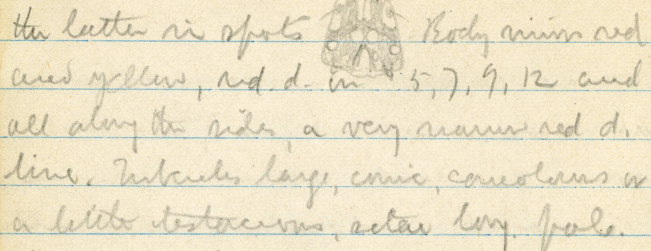 the latter in spots Body minus red
and yellow, red d. in 5, 7, 9, 12 and
all along the sides, a very narrow red d.
line. Tubercles large, conic, concolorous or
a little testaceous, setae long. pale.